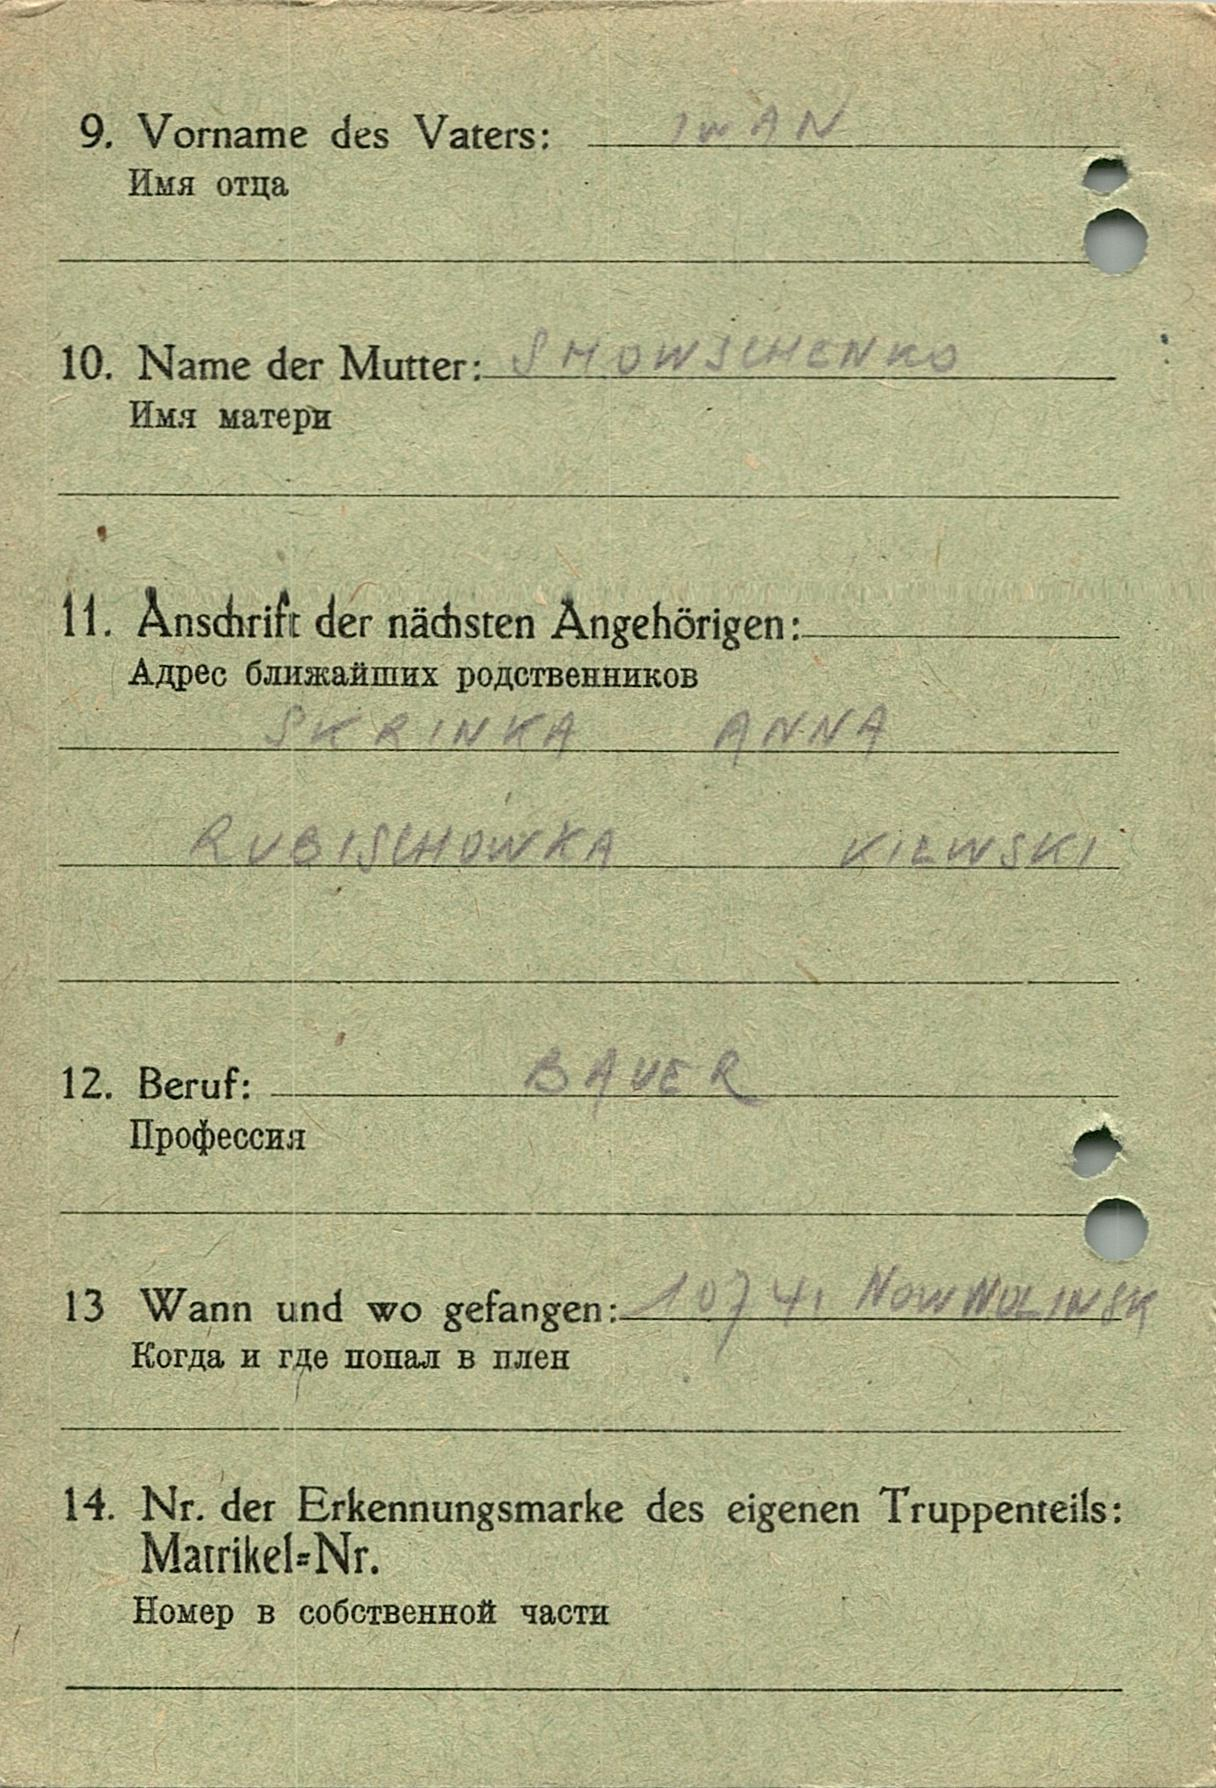 9. Vorname des Vaters: IWAN
Имя отца
10. Name der Mutter: SHOWSCHENKO
Имя матери
11. Anschrift der nächsten Angehörigen:
Адрес ближайших родственников
SKRINKA ANNA
RUBISCHOWKA KIEWSKI
12. Beruf: BAUER
Профессия
13 Wann und wo gefangen:
Когда и где попал в плен
14. Nr. der Erkennungsmarke des eigenen Truppenteils:
Matrikel=Nr.
Номер в собственной части